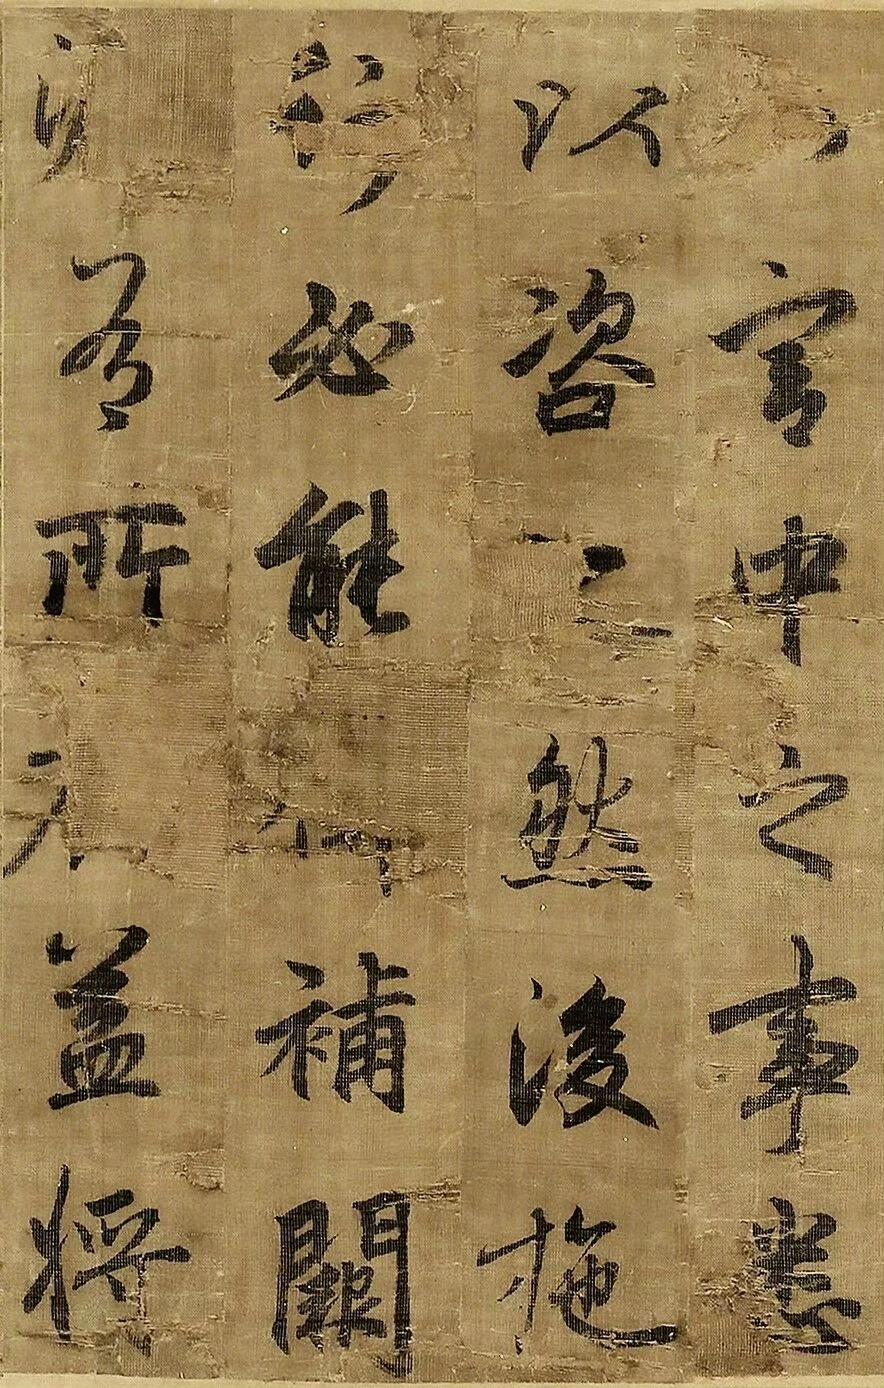 宮中之事悉
以咨然後施
行必能補闕
有所益將